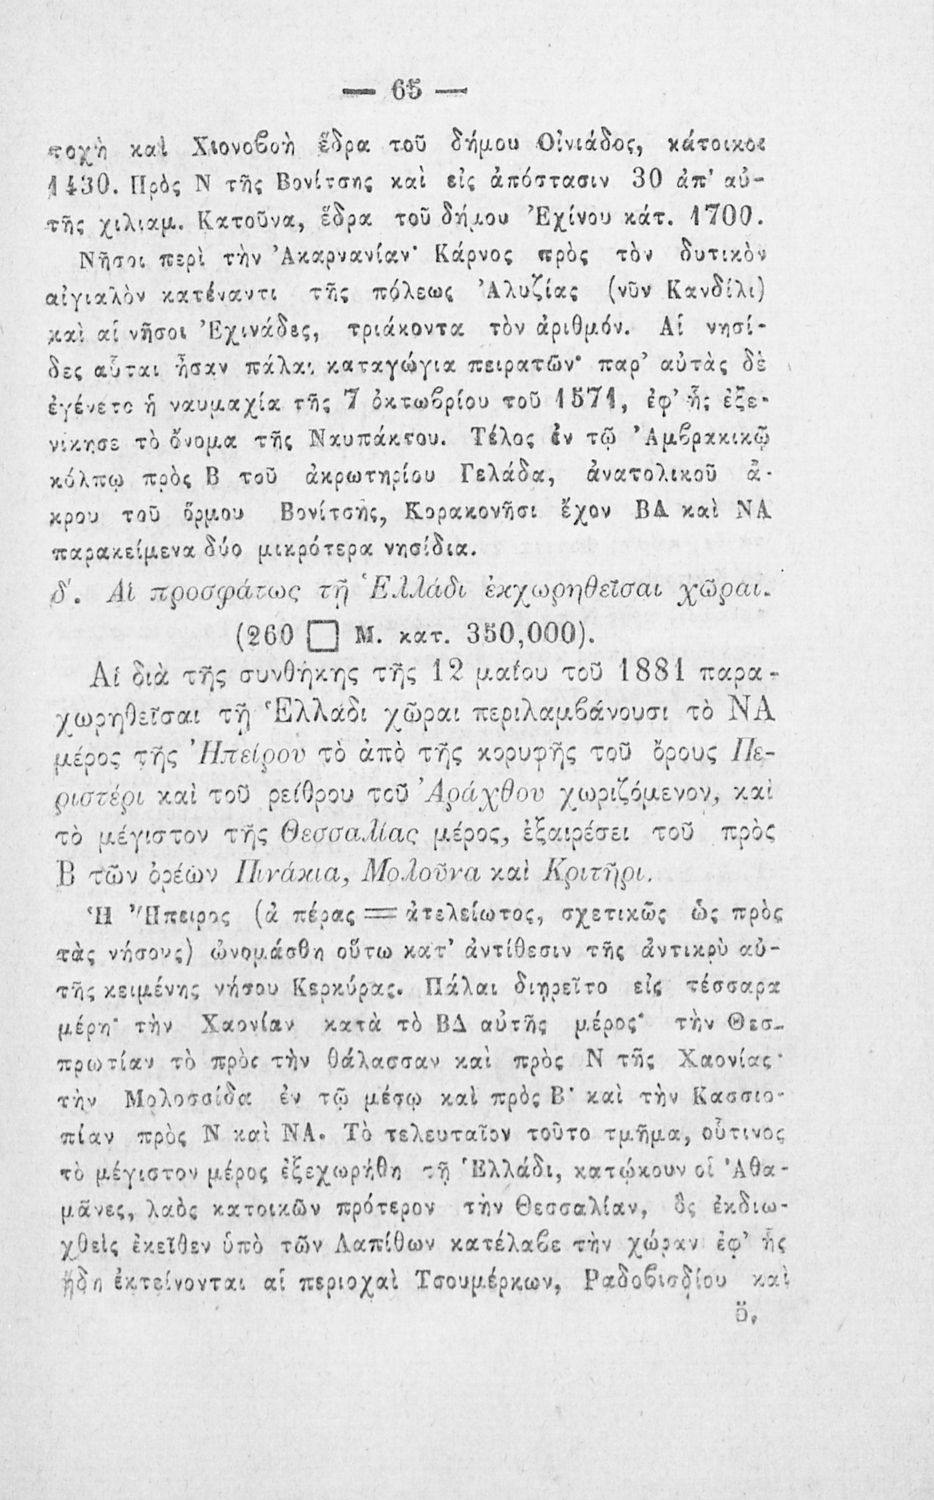 — 65 —
τοχὴ καὶ Χιονοβοὴ ἕδρα τοῦ δήμου Οἰνιάδος, κάτοικοι
1430. Πρὸς Ν τῆς Βονίτσης καὶ εἰς ἀπόστασιν 30 ἀπ’ αὐ-
τῆς χιλιαμ. Κατοῦνα, ἕδρα τοῦ δήμου Ἐχίνου κάτ. 1700.
Νῆσοι περὶ τὴν Ἀκαρνανίαν· Κάρνος πρὸς τὸν δυτικὸν
αἰγιαλὸν κατέναντι τῆς πόλεως Ἀλυζίας (νῦν Κανδίλι)
καὶ αἱ νῆσοι Ἐχινάδες, τριάκοντα τὸν ἀριθμόν. Αἱ νησί-
δες αὗται ἦσαν πάλαι καταγώγια πειρατῶν· παρ’ αὐτὰς δὲ
ἐγένετο ἡ ναυμαχία τῆς 7 ὀκτωβρίου τοῦ 1571, ἐφ’ ἧς ἐξε-
νίκησε τὸ ὄνομα τῆς Ναυπάκτου. Τέλος ἐν τῷ Ἀμβρακικῷ
κόλπῳ πρὸς Β τοῦ ἀκρωτηρίου Γελάδα, ἀνατολικοῦ ἄ-
κρου τοῦ ὅρμου Βονίτσης, Κορακονῆσι ἔχον ΒΔ καὶ ΝΑ
παρακείμενα δύο μικρότερα νησίδια.
δ'. Αἱ προσφάτως τῇ Ἑλλάδι ἐκχωρηθεῖσαι χῶραι.
(260 □ Μ. κατ. 350,000).
Αἱ διὰ τῆς συνθήκης τῆς 12 μαΐου τοῦ 1881 παρα-
χωρηθεῖσαι τῇ Ἑλλάδι χῶραι περιλαμβάνουσι τὸ ΝΑ
μέρος τῆς Ἠπείρου τὸ ἀπὸ τῆς κορυφῆς τοῦ ὄρους Πε-
ριστέρι καὶ τοῦ ρείθρου τοῦ Ἀράχθου χωριζόμενον, καὶ
τὸ μέγιστον τῆς Θεσσαλίας μέρος, ἐξαιρέσει τοῦ πρὸς
Β τῶν ὀρέων Πινάκια, Μολοῦνα καὶ Κριτῆρι.
Ἡ Ἤπειρος (ἀ πέρας = ἀτελείωτος, σχετικῶς ὡς πρὸς
τὰς νήσους) ὠνομάσθη οὕτω κατ’ ἀντίθεσιν τῆς ἀντικρὺ αὐ-
τῆς κειμένης νήσου Κερκύρας. Πάλαι διῃρεῖτο εἰς τέσσαρα
μέρη· τὴν Χαονίαν κατὰ τὸ ΒΔ αὐτῆς μέρος· τὴν Θεσ-
πρωτίαν τὸ πρὸς τὴν θάλασσαν καὶ πρὸς Ν τῆς Χαονίας·
τὴν Μολοσσίδα ἐν τῷ μέσῳ καὶ πρὸς Β· καὶ τὴν Κασσιο-
πίαν πρὸς Ν καὶ ΝΑ. Τὸ τελευταῖον τοῦτο τμῆμα, οὗτινος
τὸ μέγιστον μέρος ἐξεχωρήθη τῇ Ἑλλάδι, κατῴκουν οἱ Ἀθα-
μᾶνες, λαὸς κατοικῶν πρότερον τὴν Θεσσαλίαν, ὃς ἐκδιω-
χθεὶς ἐκεῖθεν ὑπὸ τῶν Λαπίθων κατέλαβε τὴν χώραν ἐφ’ ἧς
ἤδη ἐκτείνονται αἱ περιοχαὶ Τσουμέρκων, Ραδοβισδίου καὶ
5.